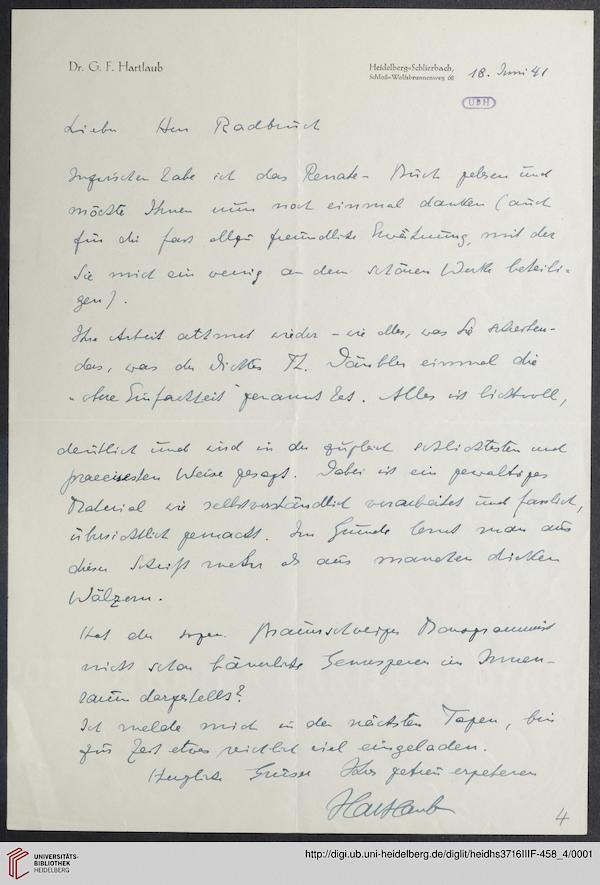 Dr. G. F. Hartlaub
Heidelberg-Schlierbach,
Schloß-Wolfsbrunnenweg 68
18. Juni 41
UBH
Lieber Herr Radbruch
Inzwischen habe ich das Renate-Buch gelesen und
möchte Ihnen nun noch einmal danken (auch
für die fast allzu freundliche Erwähnung, mit der
Sie mich ein wenig an dem schönen Werke beteili-
gen).
Ihre Arbeit atmet wieder - wie alles, was Sie schreiben -
das, was der Dichter Th. Däubler einmal die
"obere Einfachheit" genannt hat. Alles ist lichtvoll,
deutlich und wird in der zugleich schlichtesten und
praecisesten Weise gesagt. Dabei ist ein gewaltiges
Material wie selbstverständlich verarbeitet und fasslich,
übersichtlich gemacht. Im Grunde lernt man aus
dieser Schrift mehr als aus manchen dicken
Wälzern.
Hat der sogen. Braunschweiger Monogrammist
nicht schon bäuerliche Genreszenen im Innen-
raum dargestellt?
Ich melde mich in den nächsten Tagen, bin
zur Zeit etwas reichlich viel eingeladen.
Herzliche Grüsse Ihres getreu ergebenen
Hartlaub
4
UNIVERSITÄTS-
BIBLIOTHEK
HEIDELBERG
http://digi.ub.uni-heidelberg.de/diglit/heidhs3716IIIF-458_4/0001